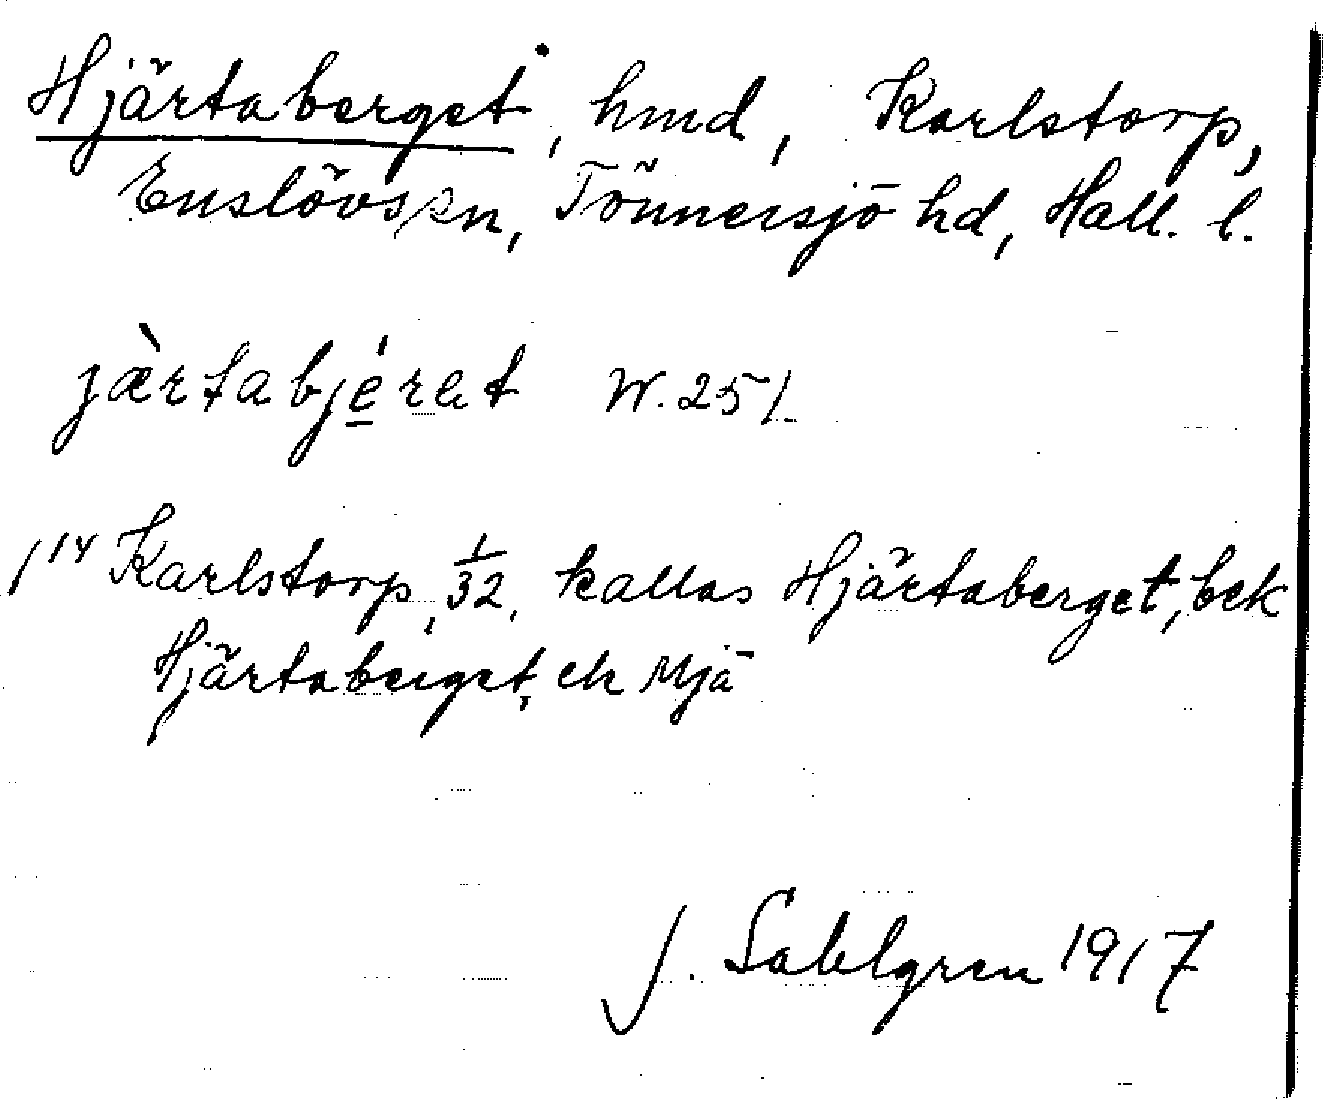 Hjärtaberget, hmd, Karlstorp,
Enslövs sn, Tönnersjö hd, Hall. l.
jæ̀rtabjérət W. 251.
1¹⁴ Karlstorp, 1/32, kallas Hjärtaberget, bek
Hjärtaberget,
J. Sahlgren 1917